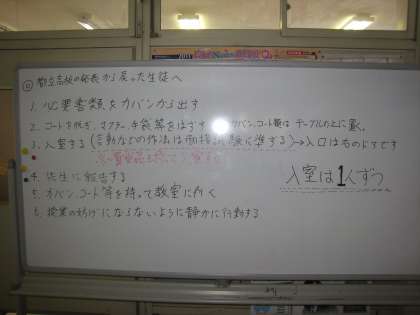 ◎都立高校の発表から戻った生徒へ
1. 必要書類をカバンから出す
2. コートを脱ぎ、マフラー、手袋等をはずす カバン、コート類はテーブルの上に置く。
3. 入室する (言動などの作法は面接試験に準ずる)→入口はものどうです
※貴重品を持って
4. 先生に報告する
5. カバン、コート等を持って教室に行く
6. 授業の妨げにならないように静かに行動する
入室は1人ずつ